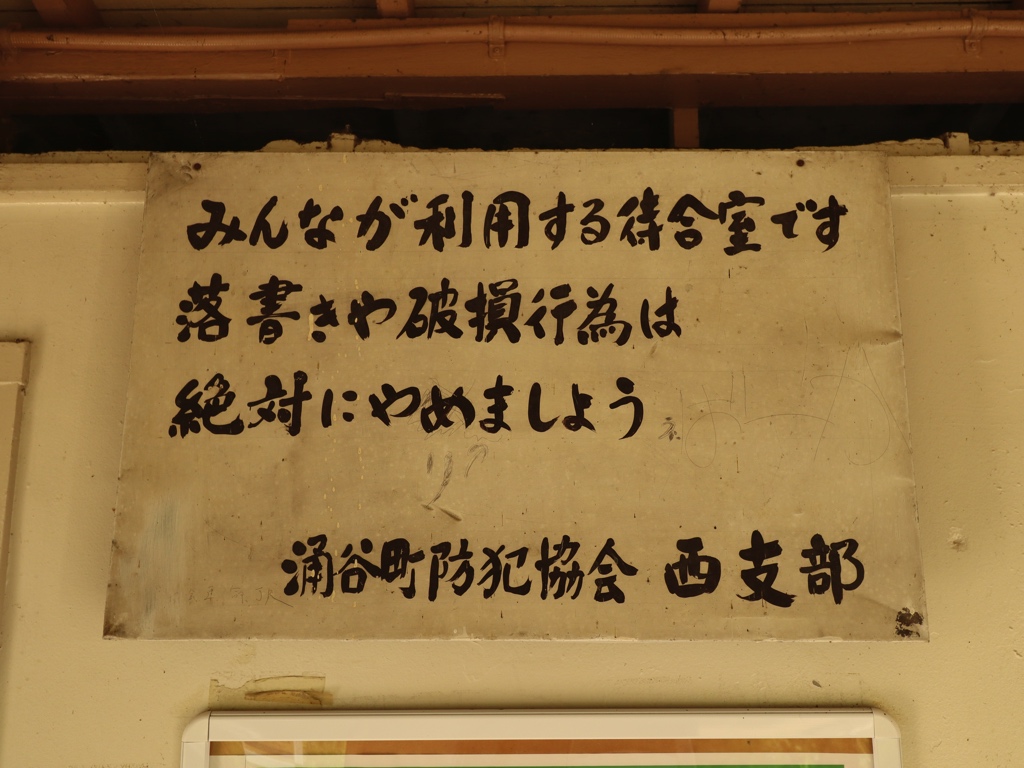 みんなが利用する待合室です
落書きや破損行為は
絶対にやめましょう
涌谷町防犯協会 西支部